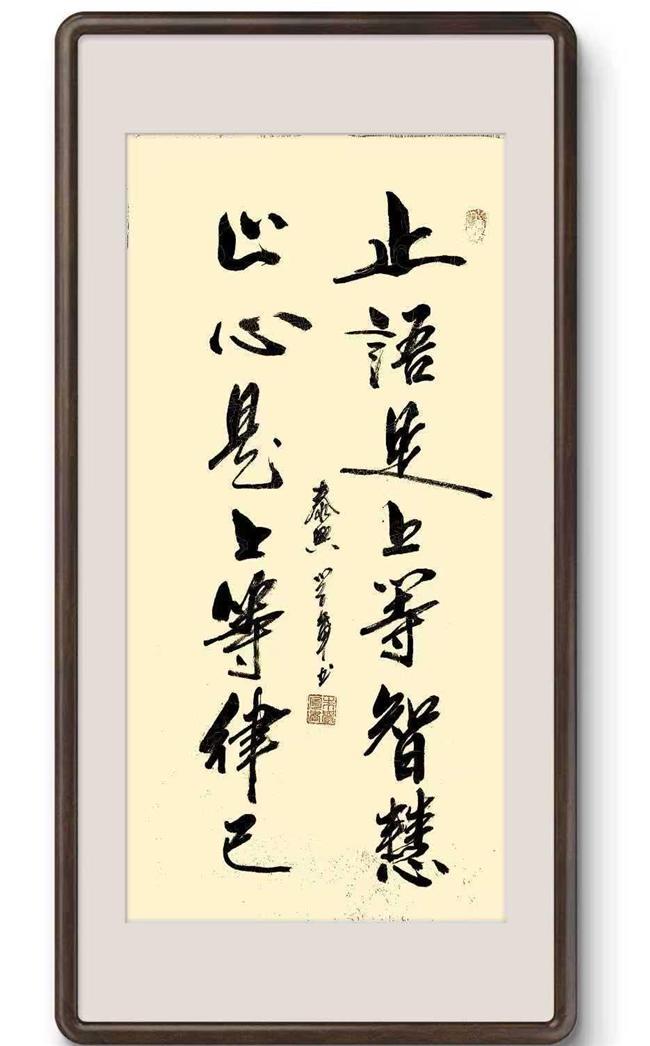 止語是上等智慧
止心是上等律己
泰興